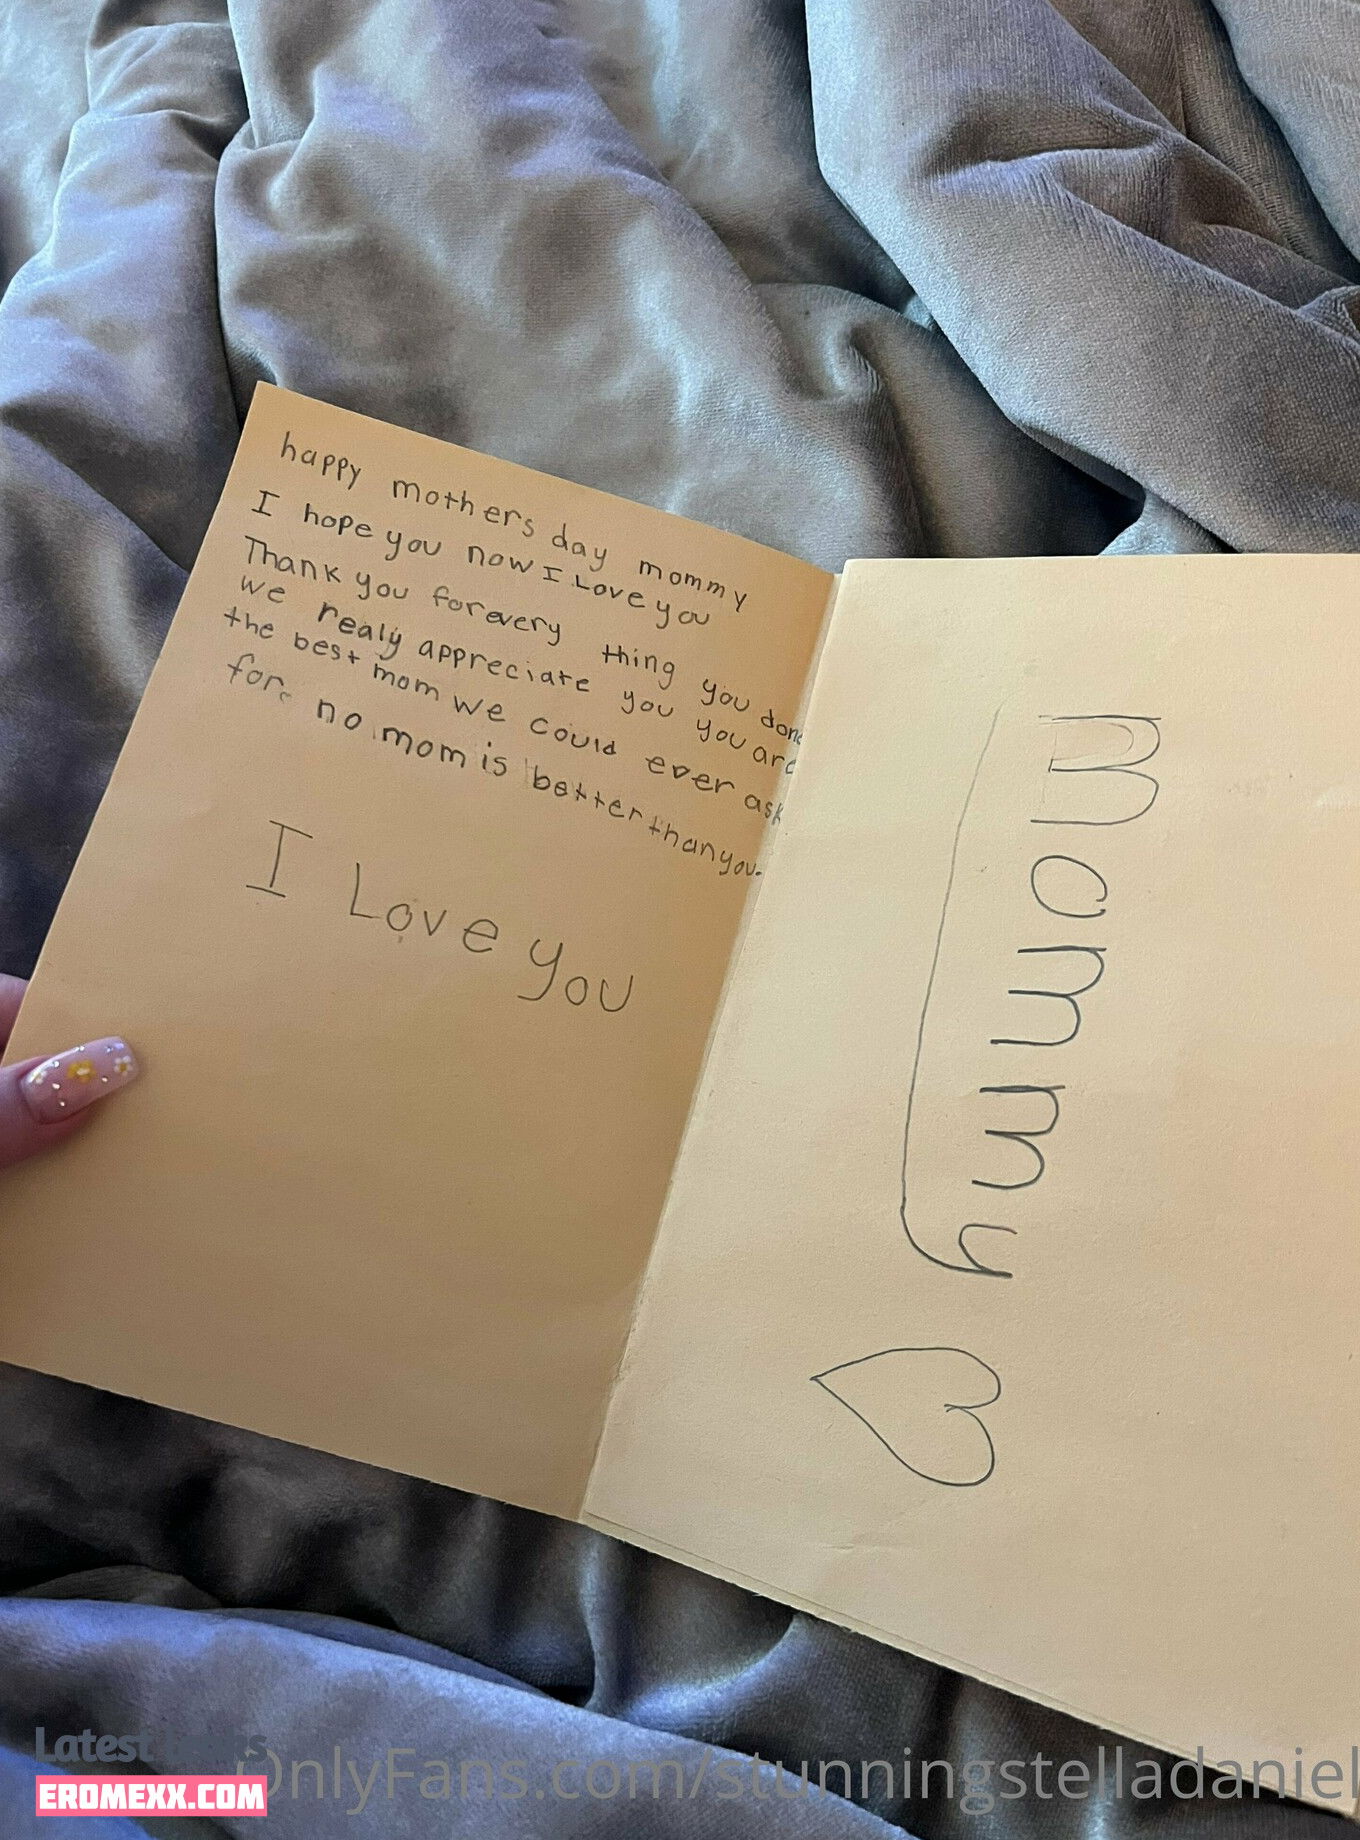 happy mothers day mommy
I hope you now I Love you
Thank you forevery thing you done
we realy appreciate you you are
the best mom we could ever ask
for. no mom is better than you.
I Love you
Mommy
Latest
EROMEXX.COM
OnlyFans.com/stunningstelladaniel